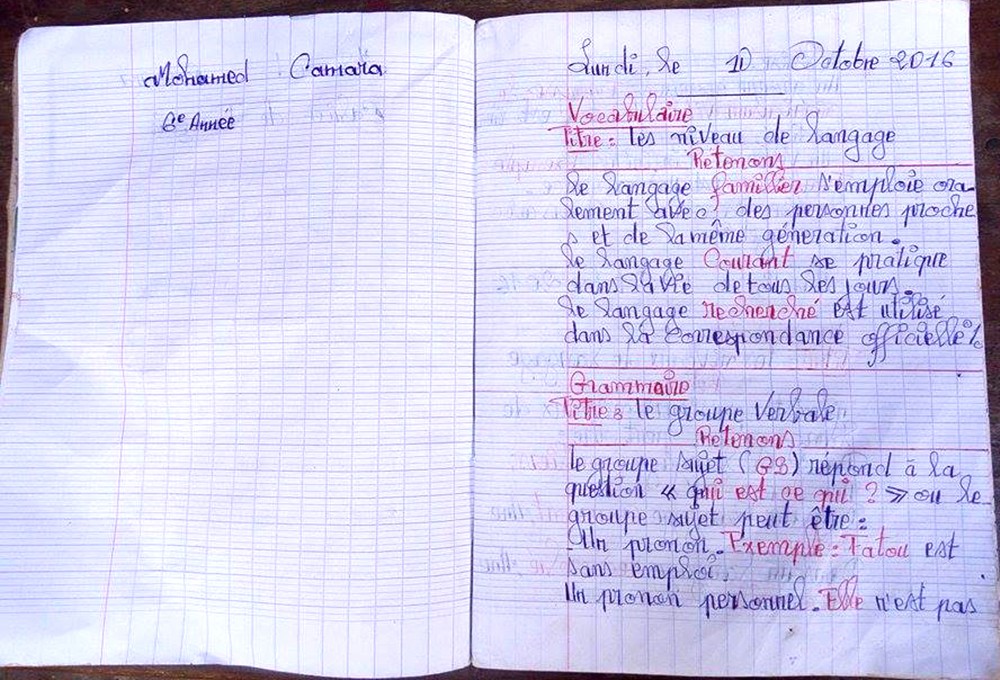 Mohamed Camara
6e Année
Lundi, le 10 Octobre 2016
Vocabulaire
Titre : les niveau de langage
Retenons
le langage familier s'emploie ora-
lement avec des personnes proche
s et de la même géneration.
le langage Courant se pratique
dans la vie de tous les jours.
le langage recherché est utilisé
dans la Correspondance officielle
Grammaire
Titre : le groupe Verbale
Retenons
le groupe sujet (GS) répond à la
question « qui est ce qui ? » ou le
groupe sujet peut être :
Un pronon. Exemple : Fatou est
sans emploi.
Un pronon personnel. Elle n'est pas